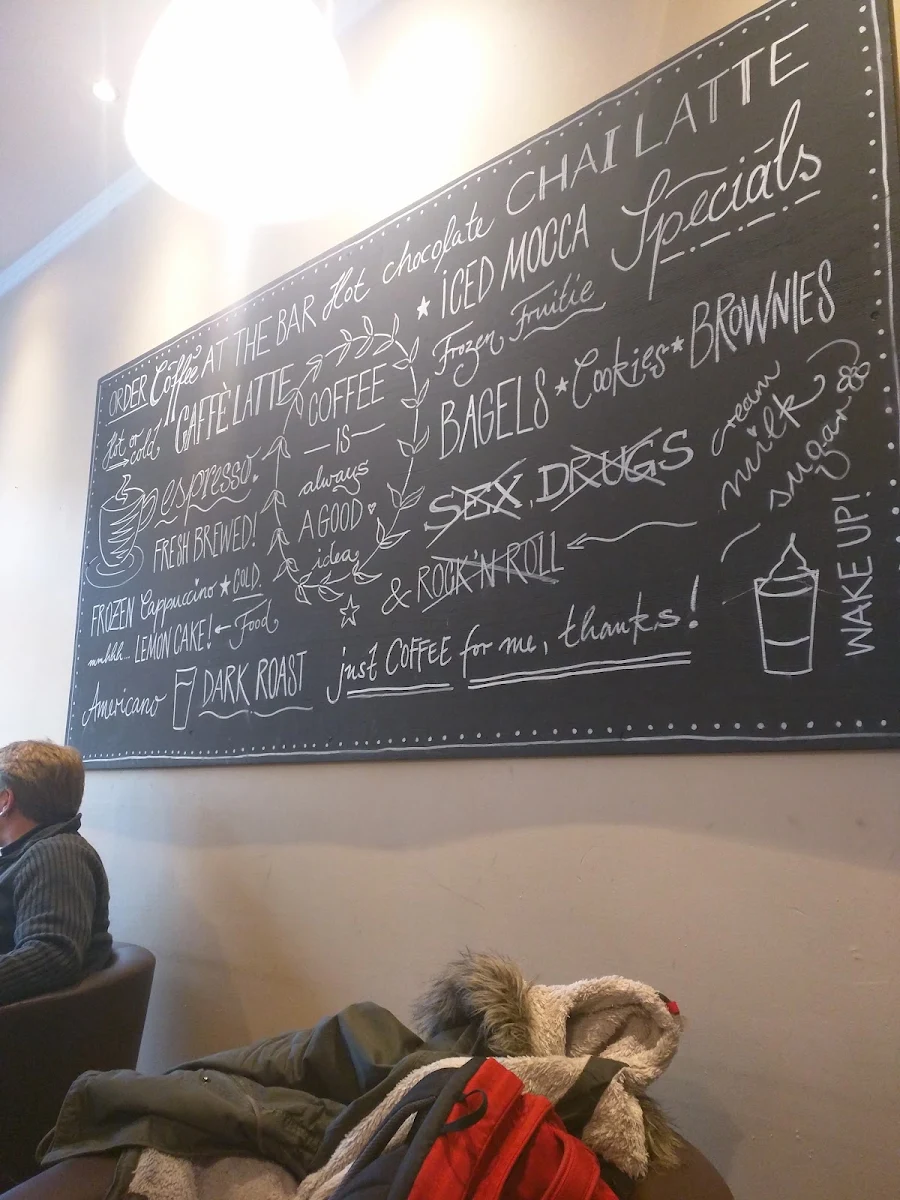 ORDER Coffee AT THE BAR Hot chocolate CHAI LATTE
Hot or cold
CAFFÈ LATTE
★ ICED MOCCA
Specials
Frozen Fruitie
espresso.
FRESH BREWED!
COFFEE
IS
always
A GOOD
idea
BAGELS * Cookies * BROWNIES
SEX, DRUGS
& ROCK'N ROLL
just COFFEE for me, thanks!
cream
milk
sugar
WAKE UP!
FROZEN Cappuccino ★ COLD.
mmhhh... LEMON CAKE! ← Food
Americano DARK ROAST